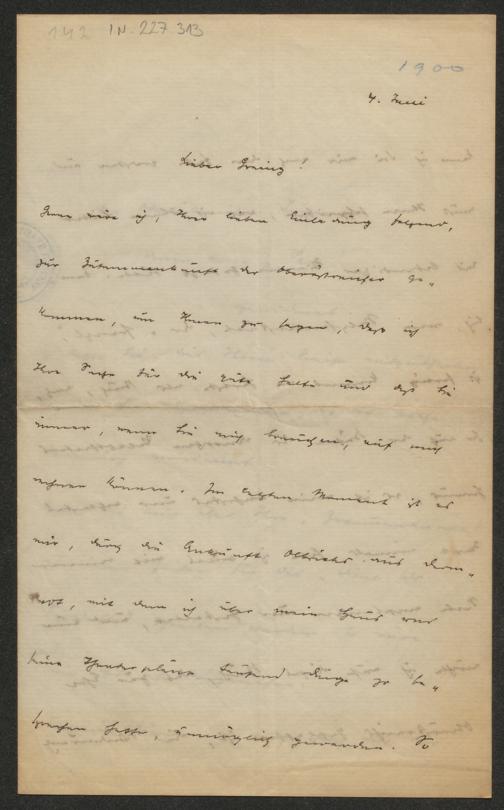 142 IN 227.313
1900
4. Juni
Lieber Greinz!
Gern wäre ich, Ihrer lieben Einladung folgend,
zur Zusammenkunft der Oberösterreicher ge-
kommen, um Ihnen zu sagen, daß ich
Ihre Sache für die gute halte und daß Sie
immer, wenn Sie mich brauchen, auf mich
rechnen können. Im letzten Moment ist es
mir, durch die Ankunft Olbrichs aus Darm-
stadt, mit dem ich über mein Haus und
seine Theaterpläne tausend Dinge zu be-
sprechen hatte, unmöglich geworden. So